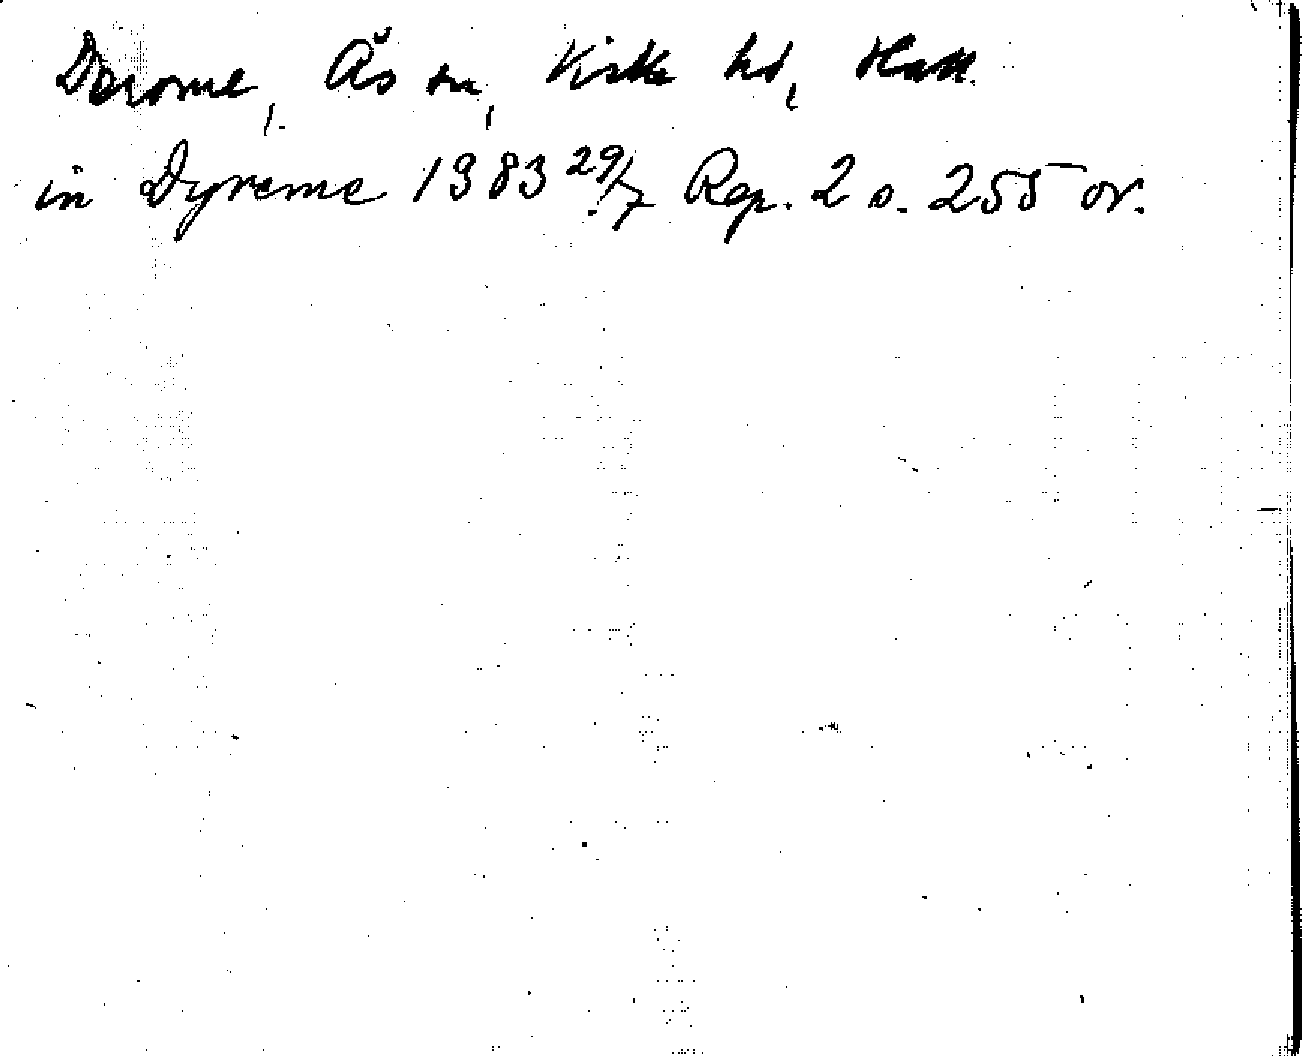 Derome, Ås sn, Viske hd, Hall.
in Dyreme 1383 29/7 Rep. 2 s. 255 or.